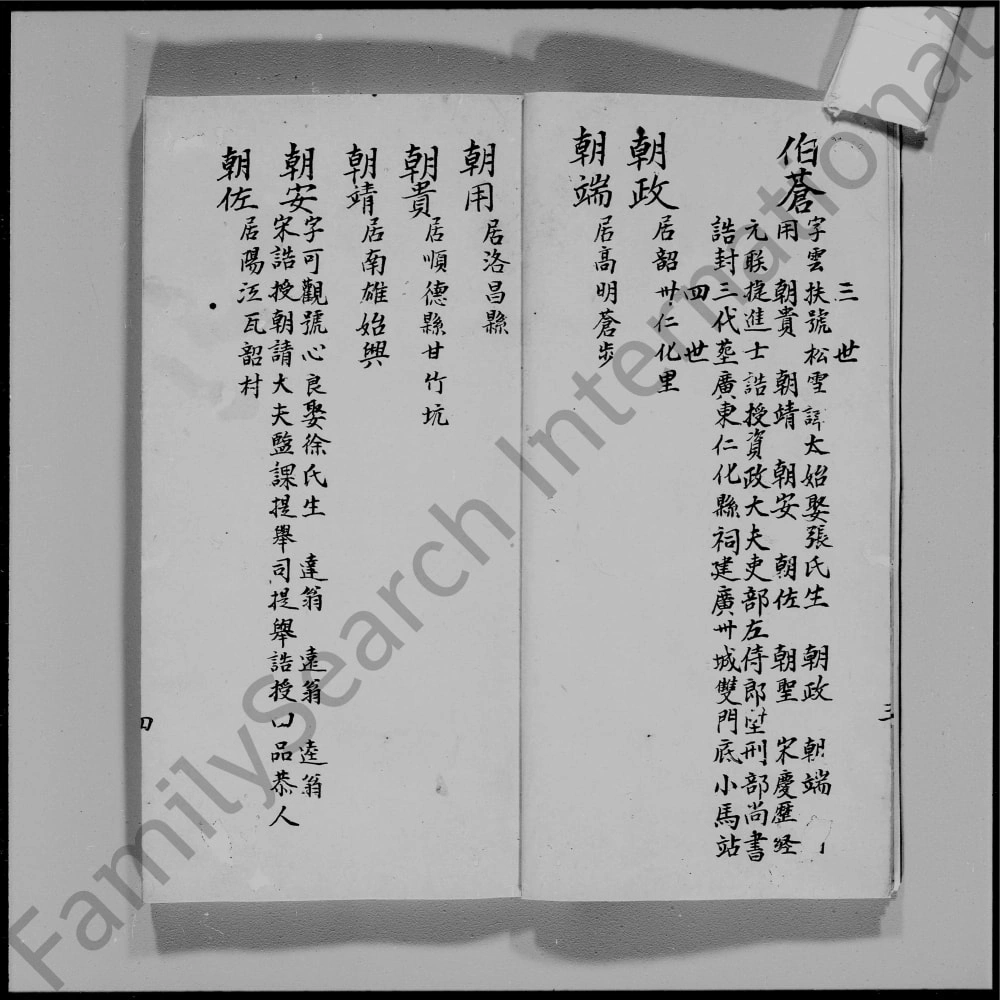 三世
伯蒼
字雲扶號松雪諱太始娶張氏生 朝政 朝端
用 朝貴 朝靖 朝安 朝佐 朝聖 宋慶歷经
元联捷進士誥授資政大夫吏部左侍郎陞刑部尚書
誥封三代塟廣東仁化縣祠建廣卅城雙門底小馬站
四世
朝政 居韶卅仁化里
朝端 居高明蒼步
三
朝用 居洛昌縣
朝貴 居順德縣甘竹坑
朝靖 居南雄始興
朝安 字可觀號心良娶徐氏生 達翁 遠翁 逵翁
宋誥授朝請大夫監課提舉司提舉誥授品恭人
朝佐 居陽江瓦韶村
四
FamilySearch International